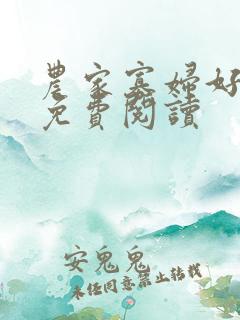 農家寡婦好
免費閱讀
安鬼鬼
未經同意禁止轉載